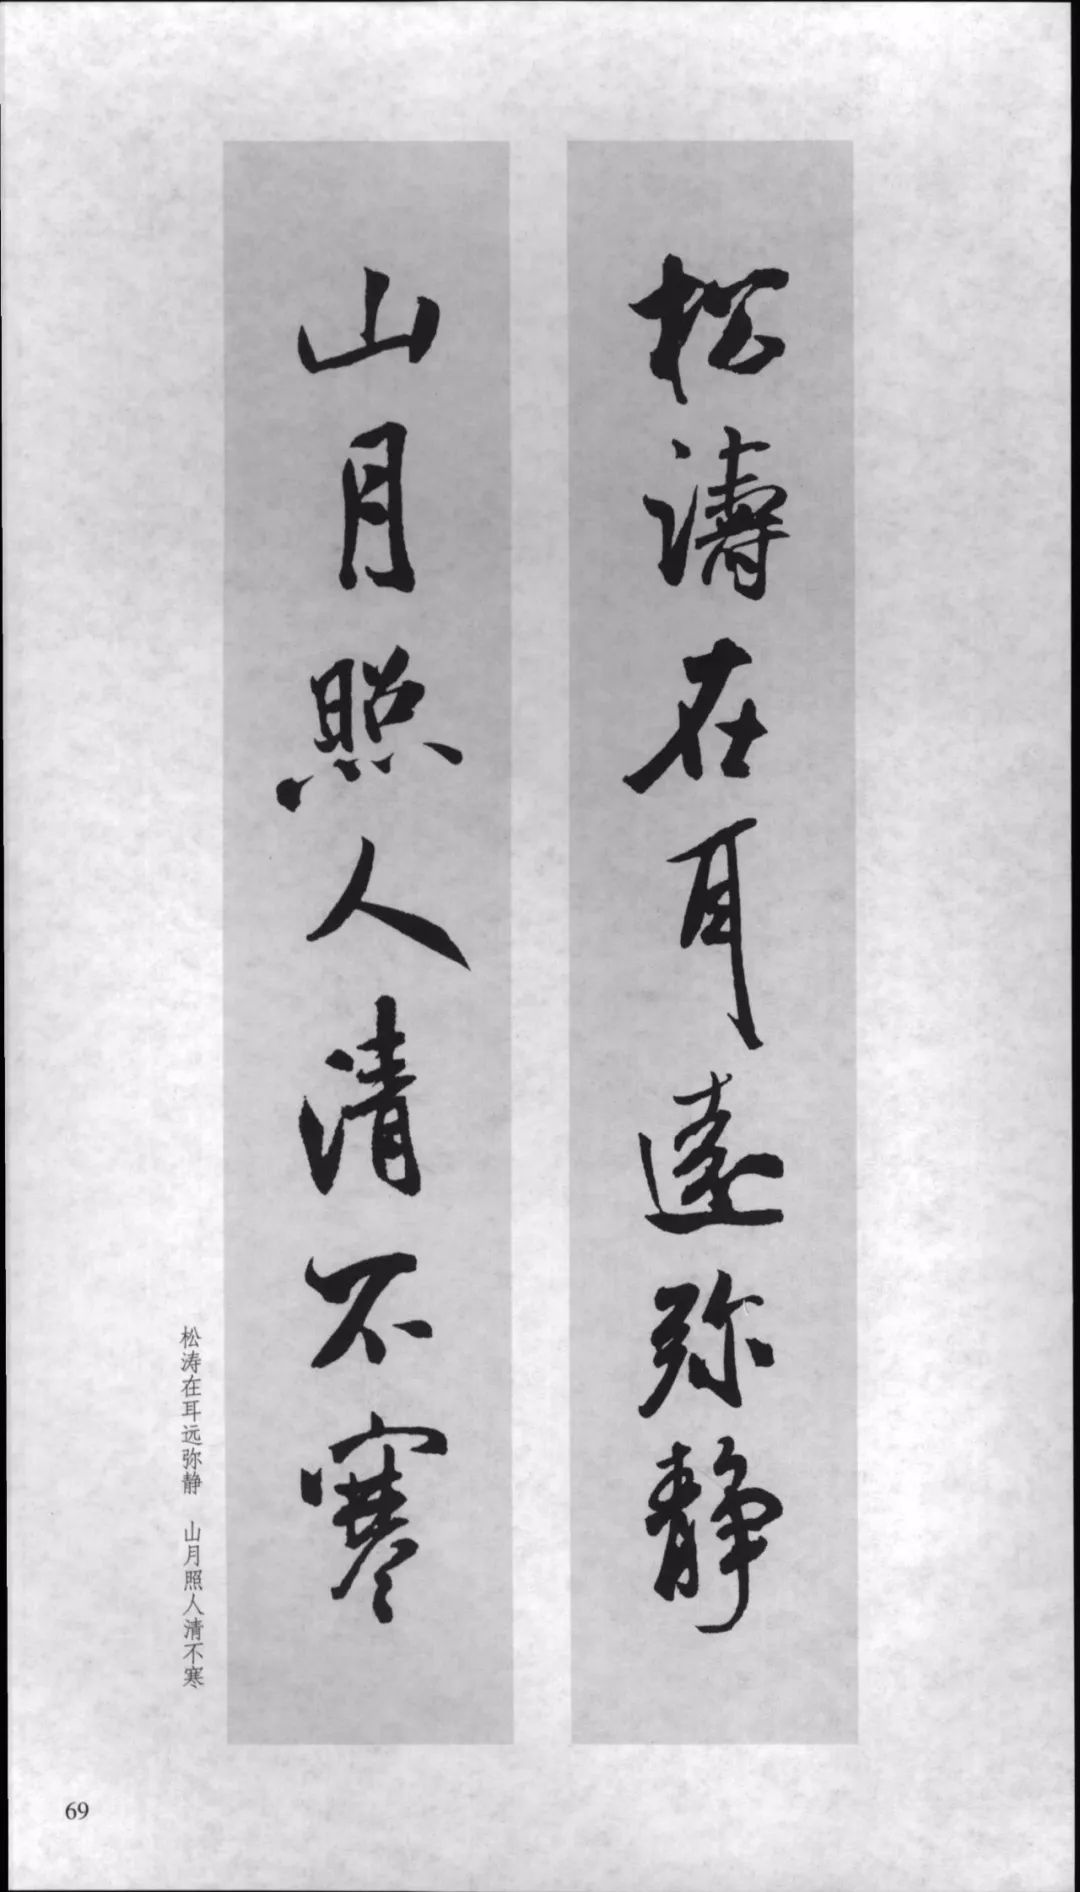 松濤在耳遠弥静
山月照人清不寒
松涛在耳远弥静 山月照人清不寒
69